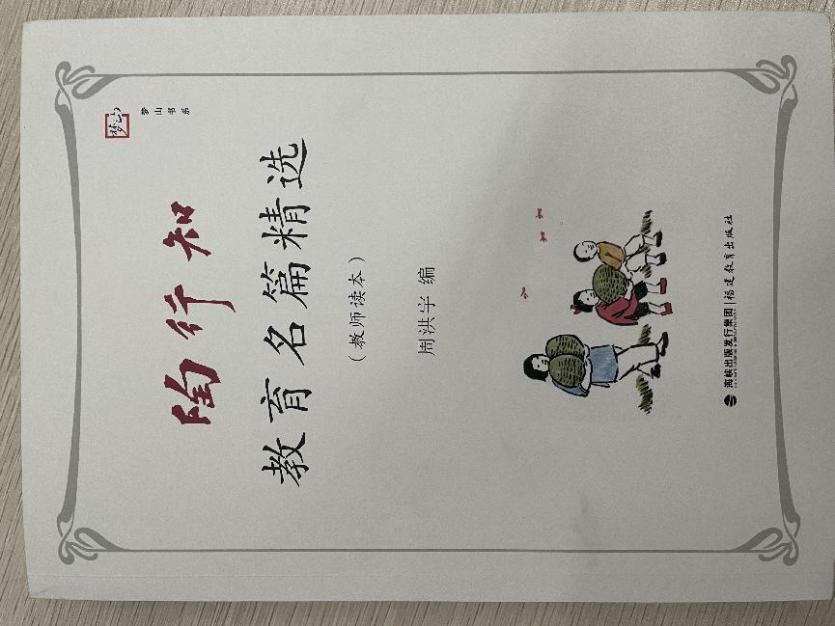 梦山
梦山书系
陶行知
教育名篇精选
（教师读本）
周洪宇 编
海峡出版发行集团 | 福建教育出版社